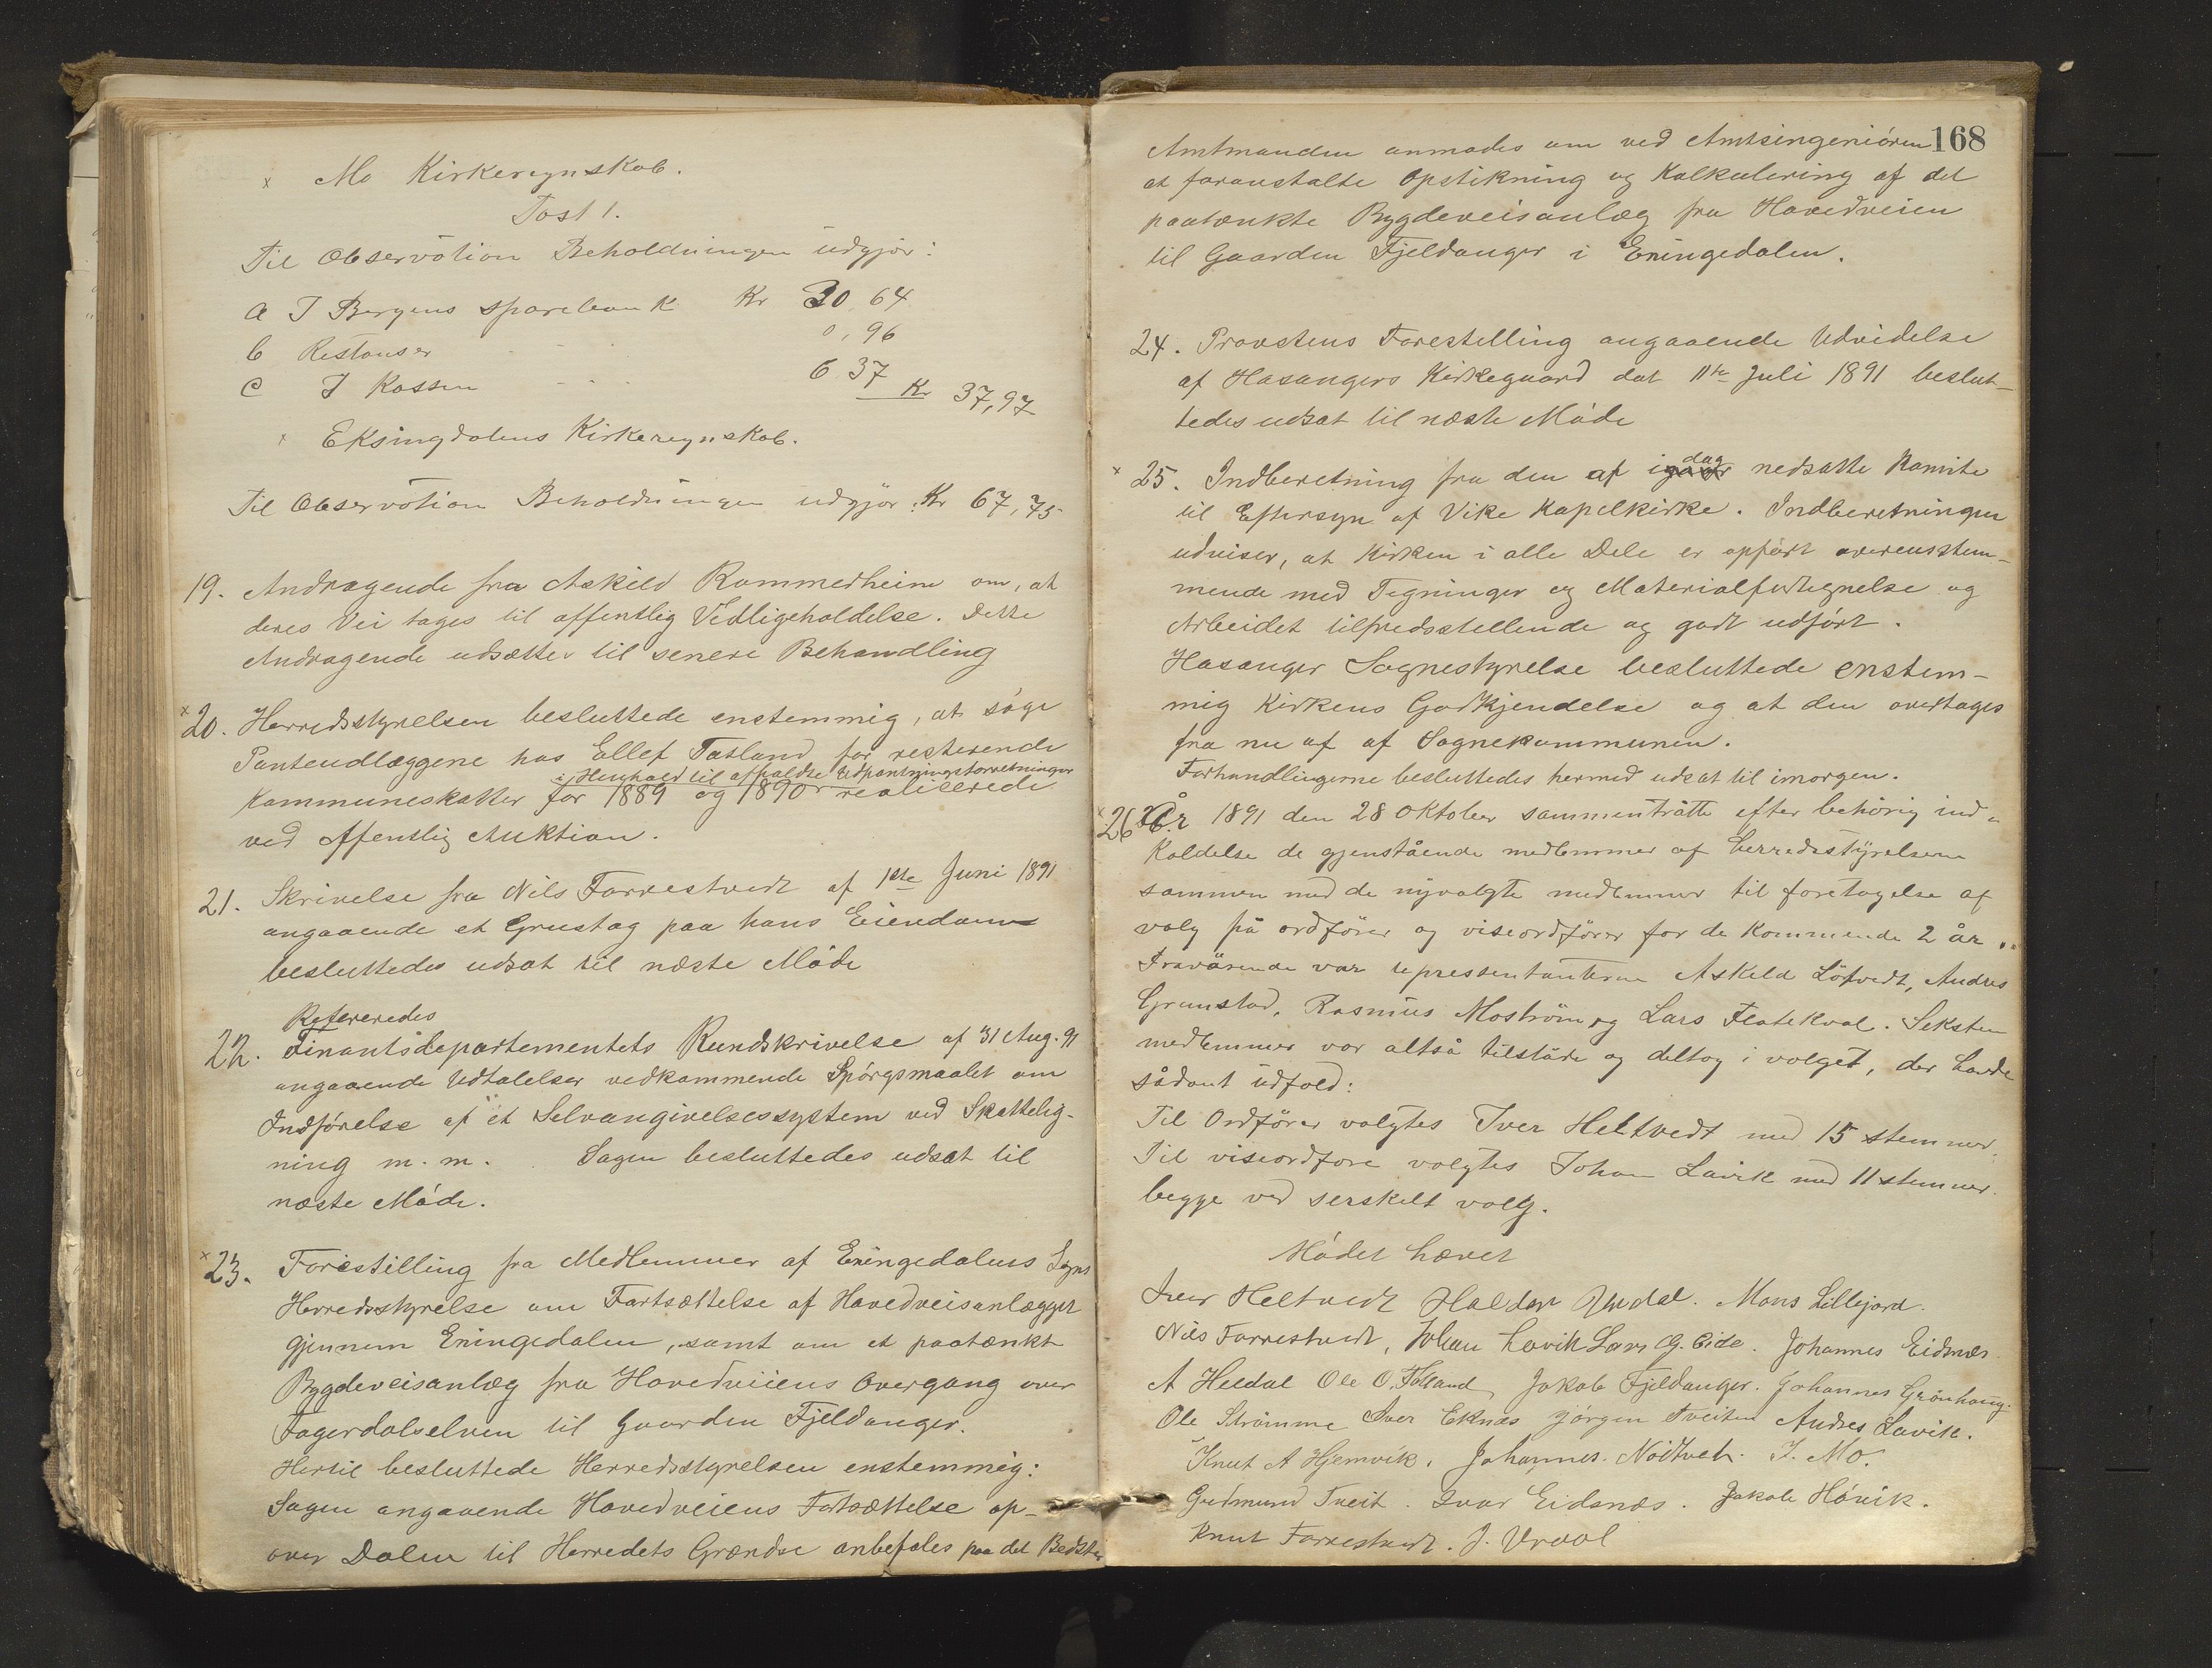 x Mo Kirkeregnskab.
Post 1.
Til Observation Beholdningen udgjör:
a I Bergens Sparebank Kr 30,64
b Restanser - - - 0,96
c I Kassen - - - 6 37 Kr 37,97
x Eksingdalens Kirkeregnskab.
Til Observation Beholdningen udgjör Kr 67,75
19. Andragende fra Askild Rommerheim om, at
deres Vei tages til offentlig Vedligeholdelse. Dette
Andragende udsættes til senere Behandling
x 20. Herredsstyrelsen besluttede enstemmig, at söge
Panteudlæggene hos Ellef Tatland for resterende
i Henhold til afholdte Udpantningsforretninger
Kommuneskatter for 1889 og 1890 realiserede
ved offentlig Auktion.
21. Skrivelse fra Nils Farrestvedt af 1ste Juni 1891
angaaende et Grustag paa hans Eiendom
besluttedes udsat til næste Möde
Refereredes
22. Finantsdepartementets Rundskrivelse af 31 Aug. 91
angaaende Udtalelser vedkommende Spörgsmaalet om
Indförelse af et Selvangivelsessystem ved Skattelig-
ning m.m. Sagen besluttedes udsat til
næste Möde.
x 23. Forestilling fra Medlemmer af Exingedalens Sogns
Herredsstyrelse om Fortsættelse af Hovedveisanlægget
gjennem Exingedalen, samt om et paatænkt
Bygdeveisanlæg fra Hovedveiens Overgang over
Fagerdalselven til Gaarden Fjeldanger.
Hertil besluttede Herredsstyrelsen enstemmig:
Sagen angaaende Hovedveiens Fortsættelse op-
over Dalen til Herredets Grændse anbefales paa det Bedste
168
Amtmanden anmodes om ved Amtsingeniören
at foranstalte Opstikning og Kalkulering af det
paatænkte Bygdeveisanlæg fra Hovedveien
til Gaarden Fjeldanger i Exingedalen.
24. Provstens Forestilling angaaende Udvidelse
af Hosangers Kirkegaard dat 11te Juli 1891 beslut-
tedes udsat til næste Möde
x 25. Indberetning fra den af idag nedsatte Komite
til Eftersyn af Vike Kapelkirke. Indberetningen
udviser, at Kirken i alle Dele er opfört overensstem-
mende med Tegninger og Materialfortegnelse og
Arbeidet tilfredsstellende og godt udfört.
Hosanger Sognestyrelse besluttede enstem-
mig Kirkens Godkjendelse og at den overtages
fra nu af af Sognekommunen.
Forhandlingerne besluttedes hermed udsat til imorgen.
x 26 År 1891 den 28 Oktober sammentrådte efter behörig ind-
kaldelse de gjenstående medlemmer af herredsstyrelsen
sammen med de nyvalgte medlemmer til foretagelse af
valg på ordförer og viseordförer for de kommende 2 år.
Fraværende var representanterne Askeld Löfvedt, Andres
Grimstad, Rasmus Moström og Lars Flatekval. Seksten
medlemmer var altså tilstede og deltog i valget, der havde
sådant udfald:
Til Ordförer valgtes Iver Heltvedt med 15 stemmer.
Til viseordförer valgtes Johan Lavik med 11 stemmer.
begge ved serskilt valg.
Mödet hævet
Iver Heltvedt Haldor Undal. Mons Lillejord.
Nils Farrestvedt, Johan Lavik Lars G. Eide. Johannes Eidsnæs
A Heldal Ole O. Tatland Jakob Fjeldanger. Johannes Grönhaug.
Ole Strömme Iver Eknæs Jörgen Tveiten Andres Lavik.
Knut A Hjemvik. Johannes Nöttveit. I. Mo.
Gudmund Tveit. Ivar Eidsnæs. Jakob Hövik.
Knut Farrestvedt. J. Urdal